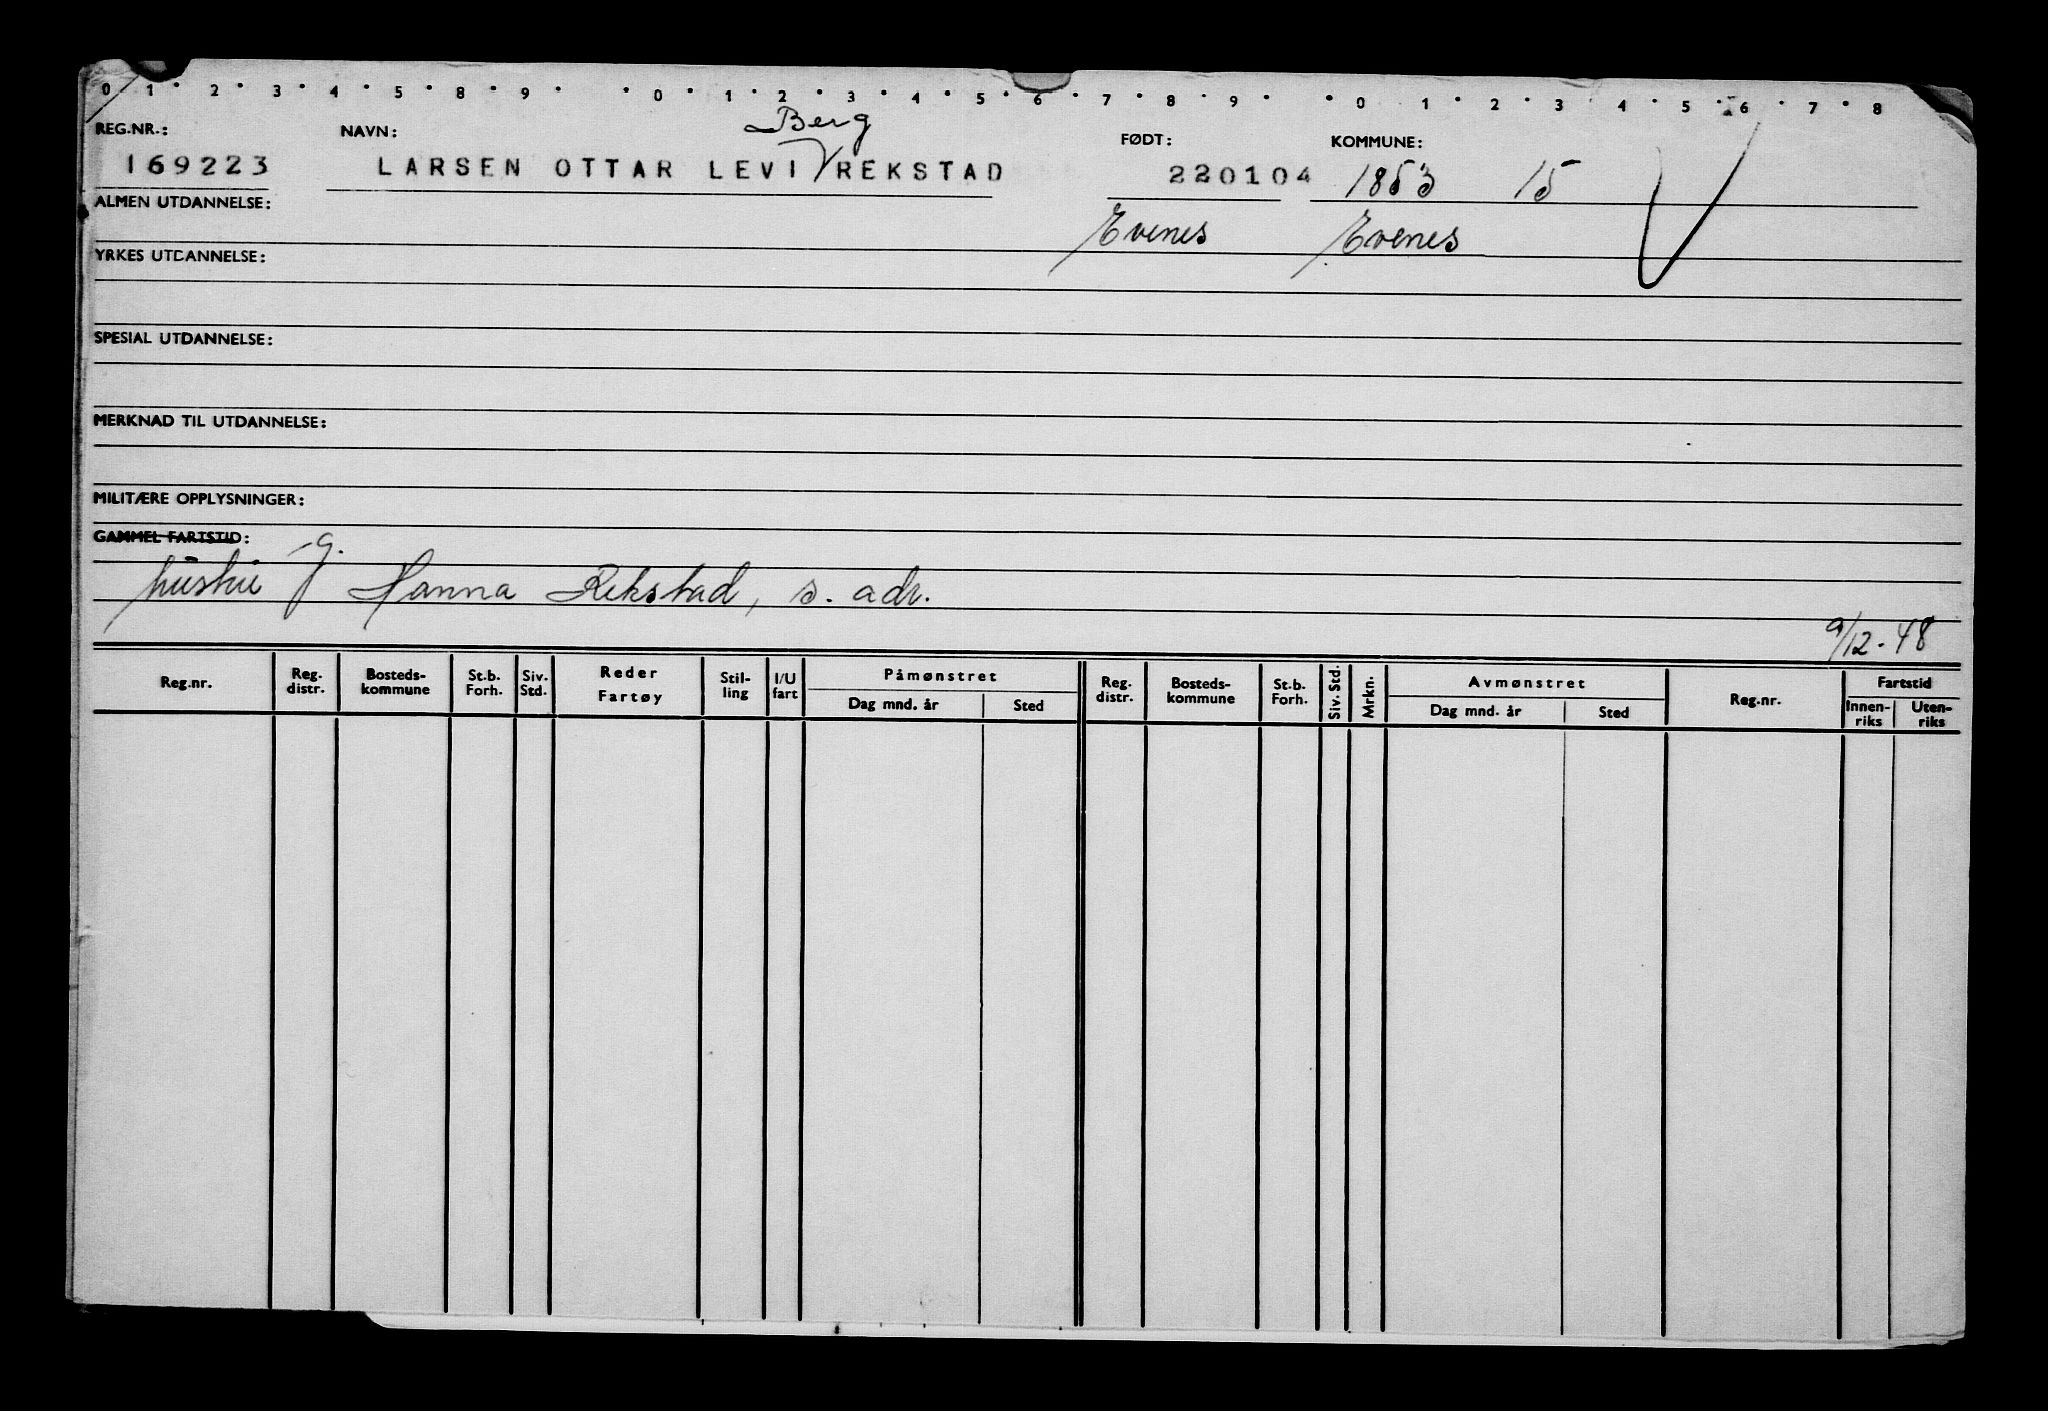 0 1 2 3 4 5 8 9 0 1 2 3 4 5 6 7 8 9 0 1 2 3 4 5 6 7 8
REG.NR.: NAVN: Berg FØDT: KOMMUNE:
169223 LARSEN OTTAR LEVI REKSTAD 220104 1853 15
ALMEN UTDANNELSE:
Evenes Evenes
YRKES UTDANNELSE:
SPESIAL UTDANNELSE:
MERKNAD TIL UTDANNELSE:
MILITÆRE OPPLYSNINGER:
GAMMEL FARTSTID:
g. Hanna Rekstad, s. adr.
9/12-48
Reg.nr. Reg. distr. Bosteds-kommune St.b. Forh. Siv. Std. Reder Fartøy Stil-ling I/U fart Påmønstret Dag mnd. år Sted Reg. distr. Bosteds-kommune St.b. Forh. Siv. Std. Mrkn. Avmønstret Dag mnd. år Sted Reg.nr. Fartstid Innen-riks Uten-riks